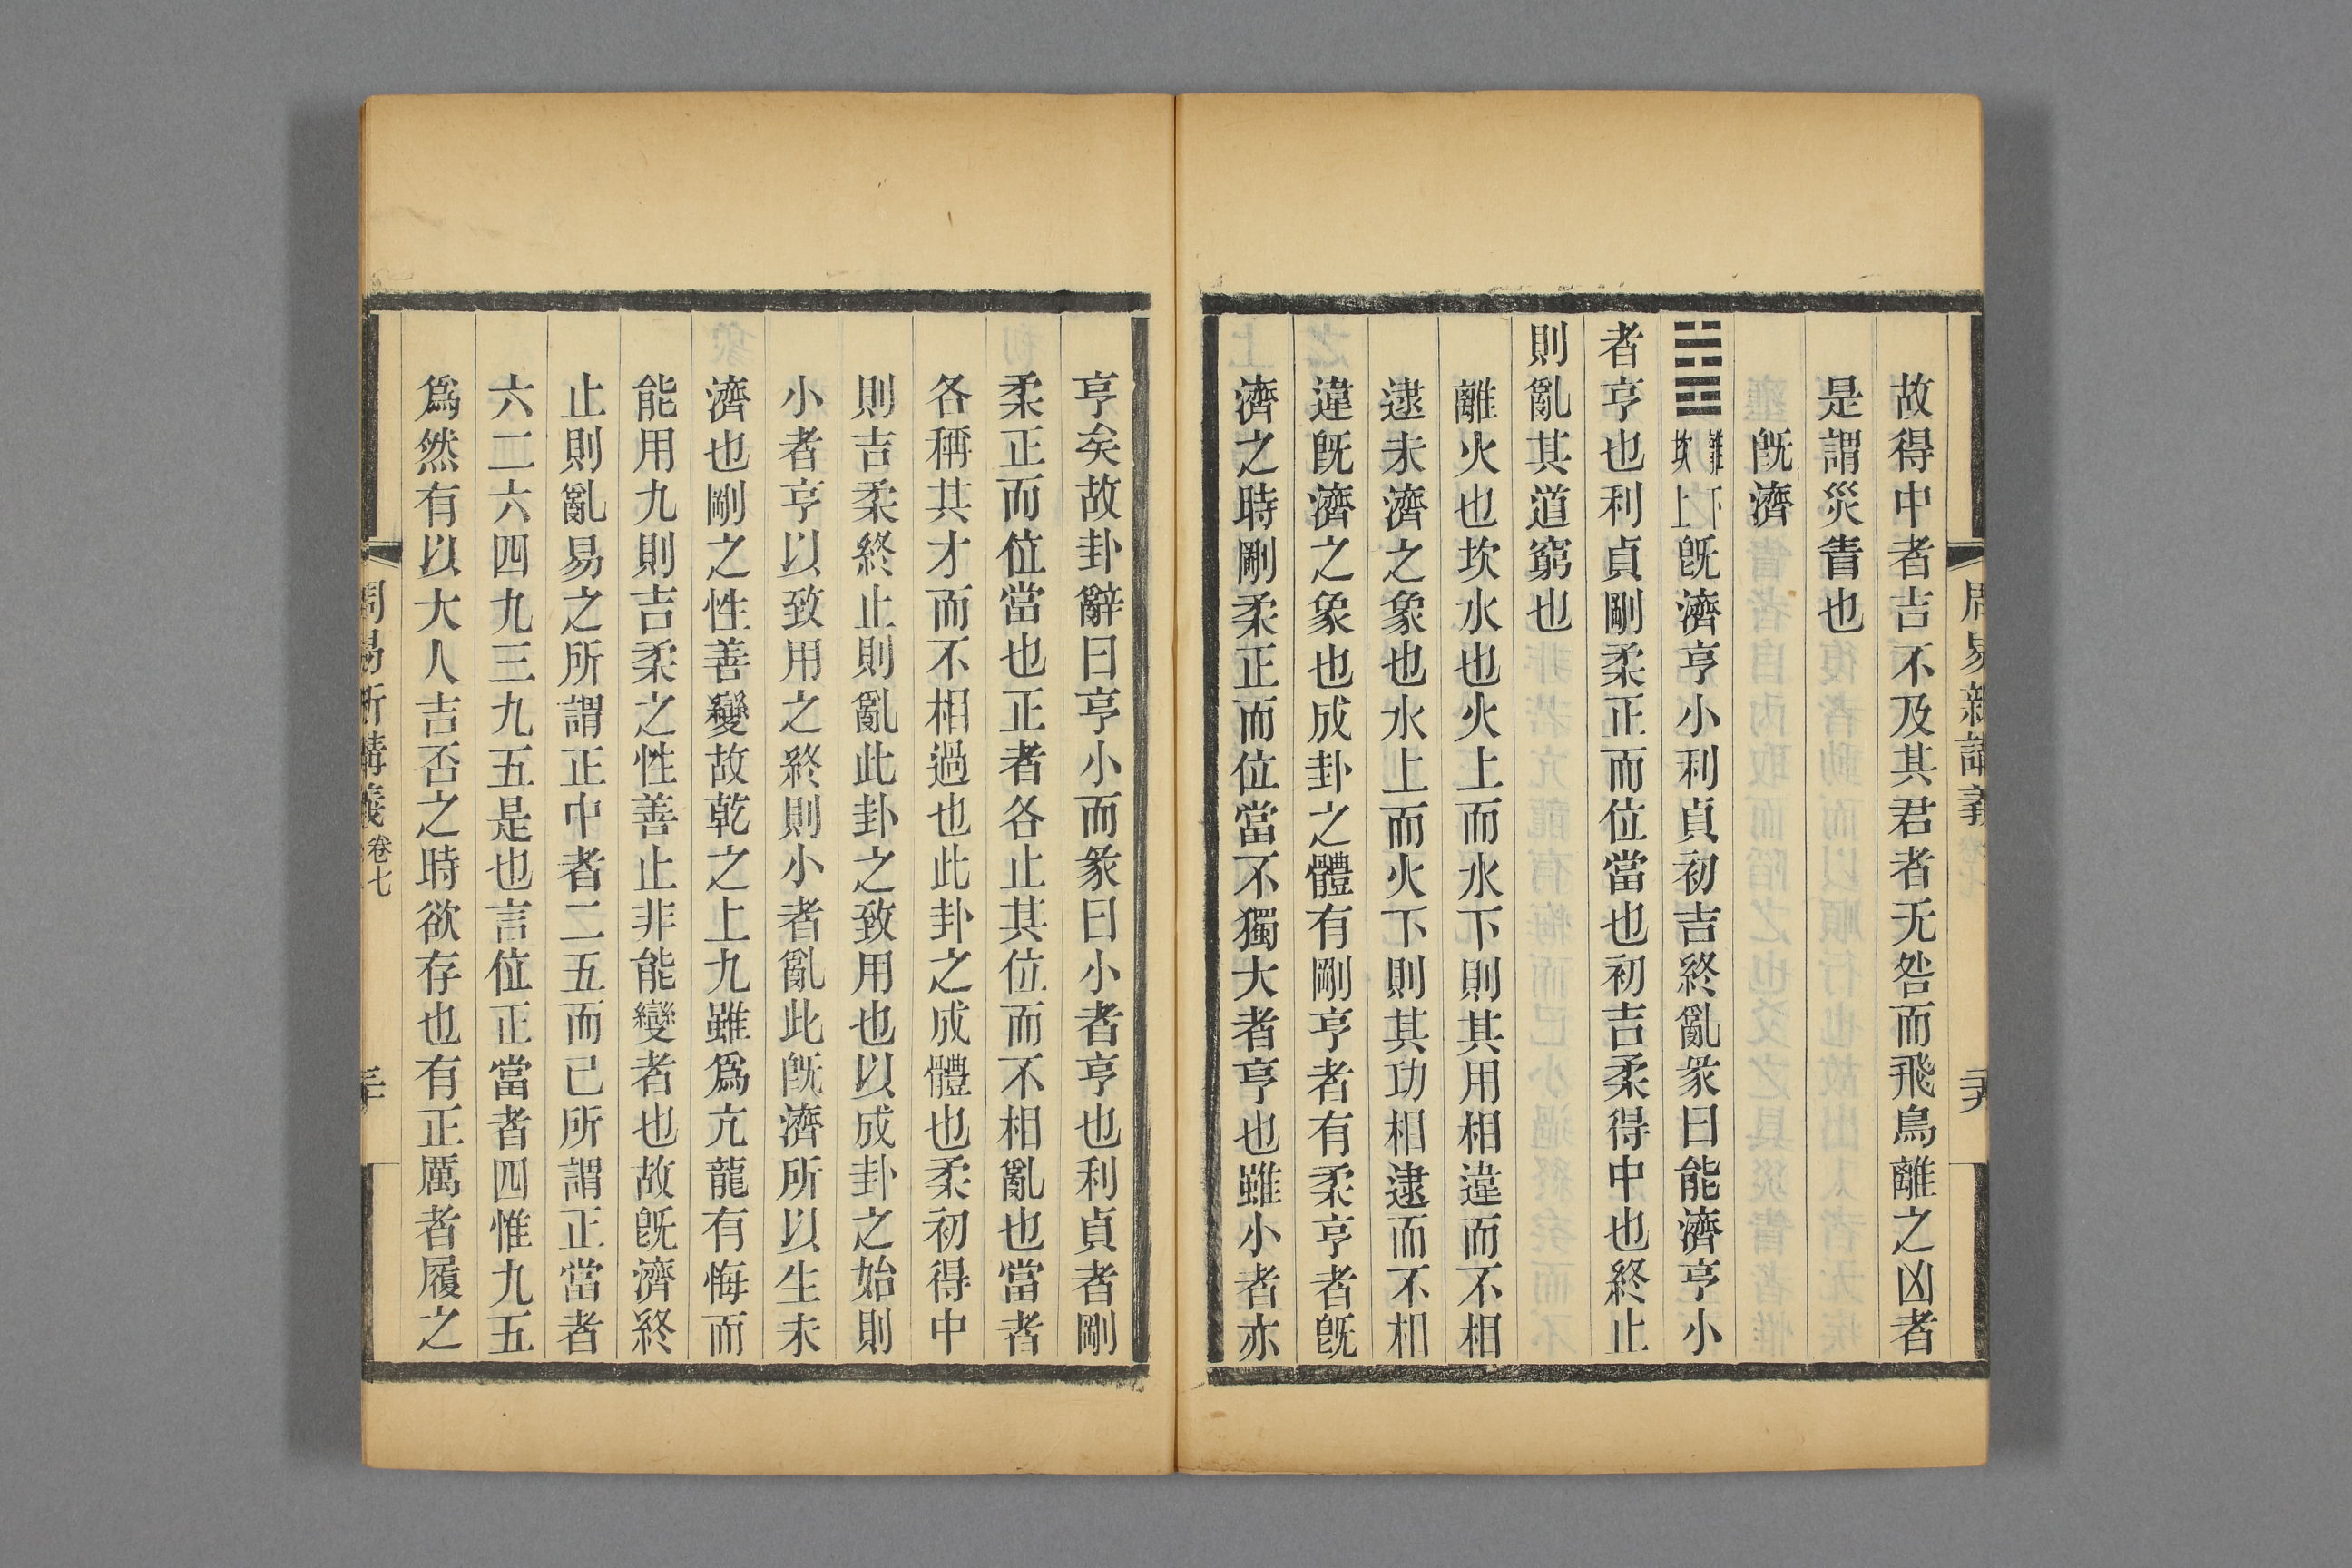 故得中者吉不及其君者无咎而飛鳥離之凶者
是謂災眚也
旣濟
䷾離下坎上旣濟亨小利貞初吉終亂彖曰旣濟亨小
者亨也利貞剛柔正而位當也初吉柔得中也終止
則亂其道窮也
離火也坎水也火上而水下則其用相違而不相
逮未濟之象也水上而火下則其功相逮而不相
違旣濟之象也成卦之體有剛亨者有柔亨者旣
濟之時剛柔正而位當不獨大者亨也雖小者亦
亨矣故卦辭曰亨小而彖曰小者亨也利貞者剛
柔正而位當也正者各止其位而不相亂也當者
各稱其才而不相過也此卦之成體也柔初得中
則吉柔終止則亂此卦之致用也以成卦之始則
小者亨以致用之終則小者亂此旣濟所以生未
濟也剛之性善變故乾之上九雖爲亢龍有悔而
能用九則吉柔之性善止非能變者也故旣濟終
止則亂易之所謂正中者二五而已所謂正當者
六二六四九三九五是也言位正當者四惟九五
爲然有以大人吉否之時欲存也有正厲者履之
周易新講義 卷七